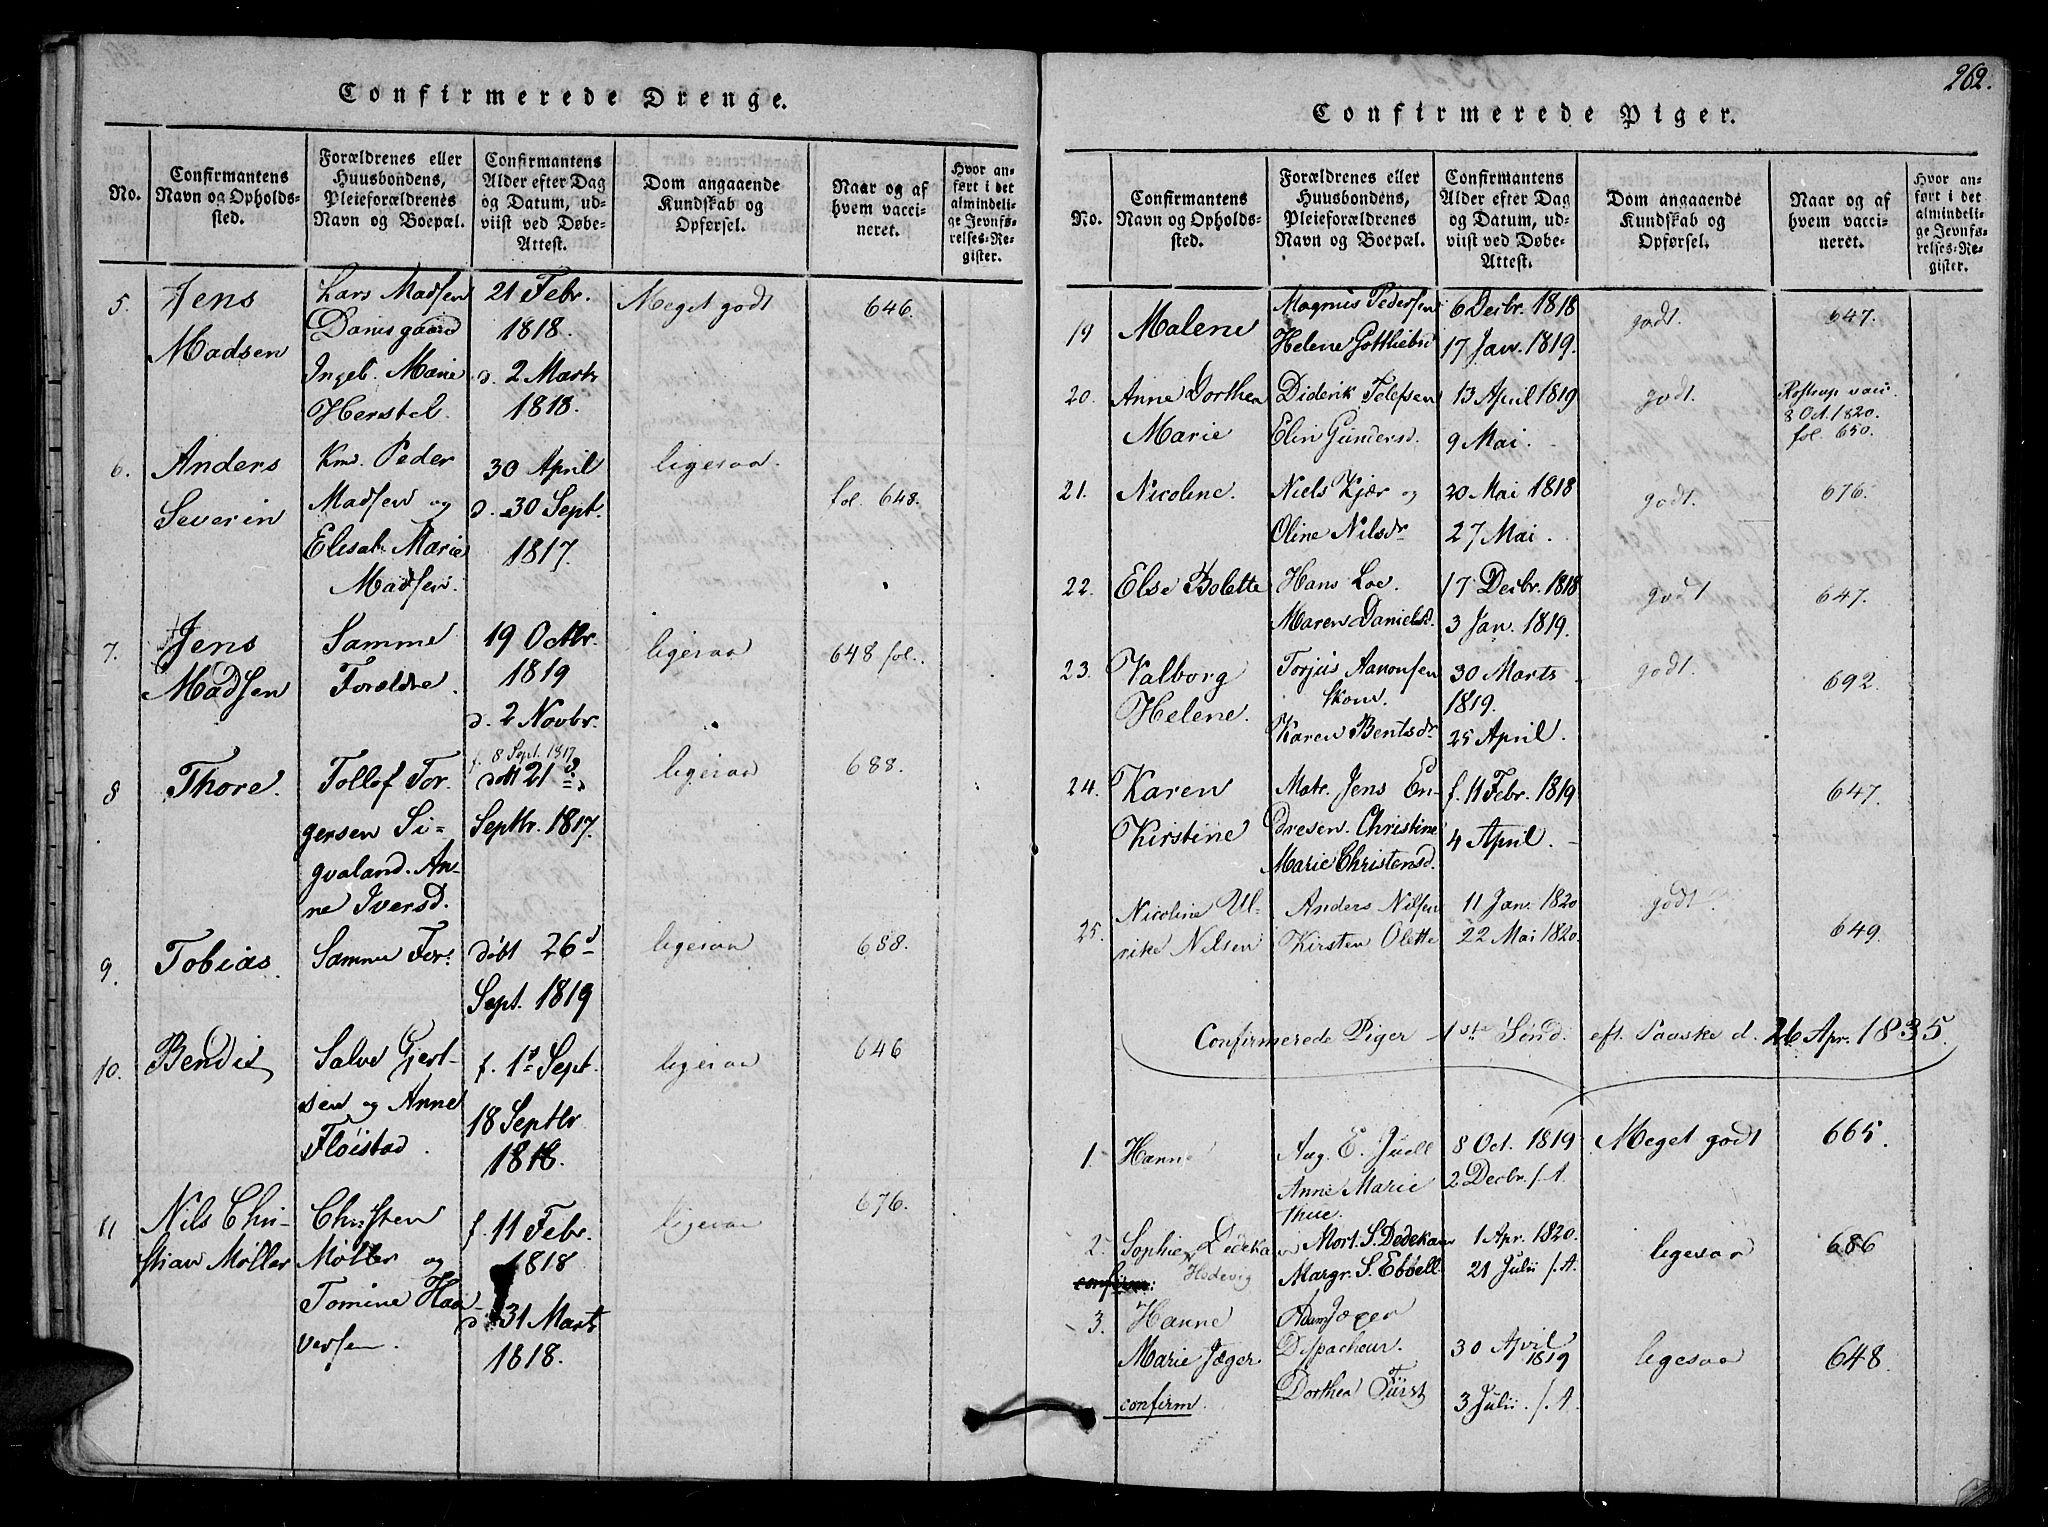 Confirmerede Drenge.
No.
Confirmantens
Navn og Opholds-
sted.
Forældrenes eller
Huusbondens,
Pleieforældrenes
Navn og Boepæl.
Confirmantens
Alder efter Dag
og Datum, ud-
viist ved Døbe-
Attest.
Dom angaaende
Kundskab og
Opførsel.
Naar og af
hvem vacci-
neret.
Hvor an-
ført i det
almindeli-
ge Jevnfø-
relses-Re-
gister.
5.
Jens
Madsen
Lars Madsen
Danisgaard
Ingeb. Marie
Herstel.
21 Febr.
1818.
d. 2 Marts
1818.
Meget godt
646.
6.
Anders
Severin
Km. Peder
Madsen og
Elisab. Marie
Madsen.
30 April
d. 30 Sept.
1817.
ligesaa.
fol. 648.
7.
Jens
Madsen
Samme
Forældre.
19 Octbr.
1819
d. 2 Novbr.
ligesaa
648 fol.
8
Thore.
Tollof Tor-
gersen Si-
gvaland. An-
ne Iversd.
f. 8 Sept. 1817.
døbt 21 d
Septbr. 1817.
ligesaa
688.
9.
Tobias.
Samme For.
døbt 26 d
Sept. 1819
ligesaa
688.
10.
Bendix
Salve Gjert-
sen og Anne
Fløistad.
f. 1 d Sept.
18 Septbr
1818.
ligesaa
646
11
Nils Chri-
stian Møller
Christen
Møller og
Tomine Haa-
versen.
f. 11 Febr.
1818
d. 31 Marts
1818.
ligesaa
676.
262.
Confirmerede Piger.
No.
Confirmantens
Navn og Opholds-
sted.
Forældrenes eller
Huusbondens,
Pleieforældrenes
Navn og Boepæl.
Confirmantens
Alder efter Dag
og Datum, ud-
viist ved Døbe-
Attest.
Dom angaaende
Kundskab og
Opførsel.
Naar og af
hvem vacci-
neret.
Hvor an-
ført i det
almindeli-
ge Jevnfø-
relses-Re-
gister.
19
Malene
Magnus Pedersen
Helene Gottliebsd
6 Decbr. 1818
17 Jan. 1819.
godt.
647.
20.
Anne Dorthea
Marie
Diderik Telefsen
Elen Gundersd.
13 April 1819
9 Mai.
godt.
Rostrup vacc.
8 Oct. 1820.
fol. 650.
21.
Nicoline.
Niels Kjær og
Oline Nilsdr
20 Mai 1818
27 Mai.
godt.
676.
22.
Else Bolette
Hans Loe.
Maren Danielsd.
17 Decbr. 1818
3 Jan. 1819.
godt
647.
23.
Valborg
Helene.
Torjus Aanonsen
Skom.
Karen Bentsdr
30 Marts
1819.
25 April.
godt.
692.
24.
Karen
Kirstine
Matr. Jens En-
dresen. Christine
Marie Christensd.
f. 11 Febr. 1819
4 April.
647.
25.
Nicoline Ul-
rike Nilsen
Anders Nilsen
Kirsten Olette
11 Jan. 1820
22 Mai 1820.
godt.
649.
Confirmerede Piger 1ste Sønd. eft. Paaske d. 26 Apr. 1835.
1.
Hanne
Aug. E. Juell
Anne Marie
Thue.
8 Oct. 1819
2 Decbr. f. A.
Meget godt
665.
2.
Sophie Dedekam
Hedevig
Mort. S. Dedekam
Margr. S. Ebbell.
1 Apr. 1820.
21 Julii f. A.
ligesaa
686
confirm:
3.
Hanne
Marie Jæger
confirm.
Adam Jæger
Dispacheur.
Dorthea Fürst
30 April
1819
3 Julii. f. A.
ligesaa
648.